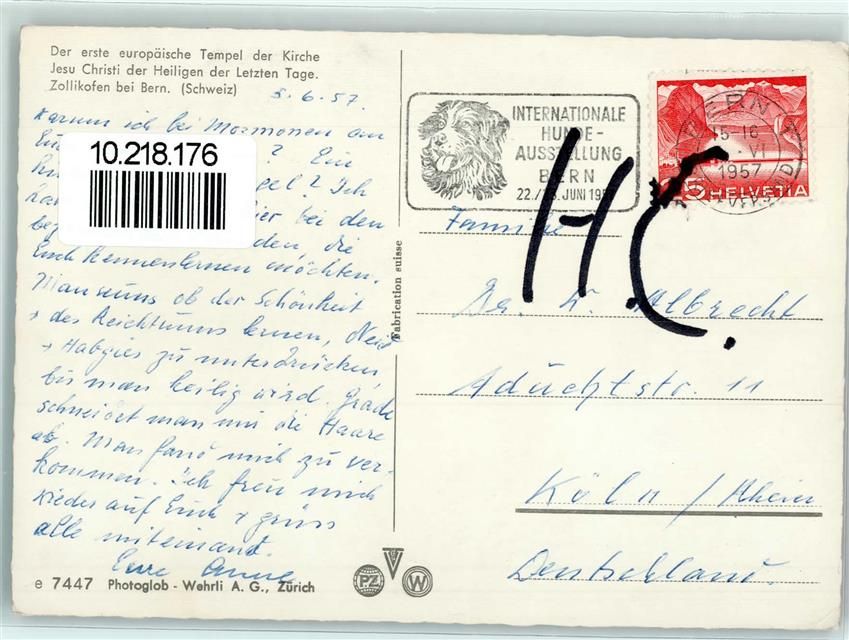 Der erste europäische Tempel der Kirche
Jesu Christi der Heiligen der Letzten Tage.
Zollikofen bei Bern. (Schweiz)
5.6.57.
Warum ich bei Mormonen an
10.218.176
? Ein
? Ich
hier bei den
die
Euch kennenlernen möchten.
Man muss ob der Schönheit
+ des Reichtums lernen, Neid
+ Habgier zu unterdrücken
bis man heilig wird. Grade
schneidet man mir die Haare
ab. Man fand mich zu ver-
kommen. Ich freu mich
wieder auf Euch + grüss
alle miteinand.
Eure Anne
e 7447 Photoglob - Wehrli A. G., Zürich
PZ
W
Fabrication suisse
INTERNATIONALE
HUNDE-
AUSSTELLUNG
BERN
22./23. JUNI 1957
BERN
15-16
VI
1957
5 HELVETIA
H.C.
Familie
Dr. W. Albrecht
Aduchtstr. 11
Köln / Rhein
Deutschland.